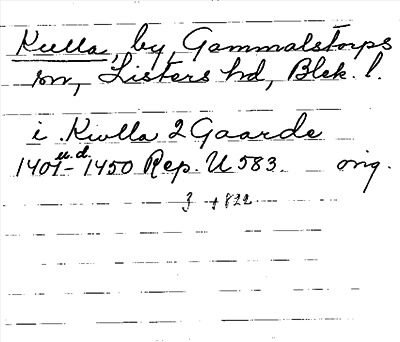 Kulla, by, Gammalstorps
sn, Listers hd, Blek. l.
i Kwlla 2 Gaarde
u.d.
1401-1450 Rep. U 583. orig.